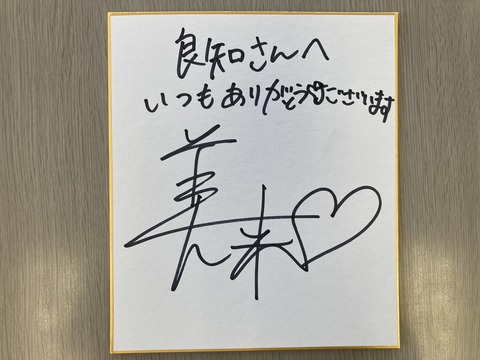 良知さんへ
いつもありがとう♡ございます
美来♡